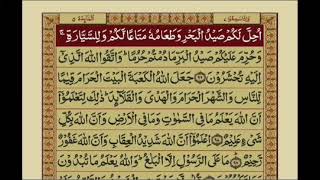 أُحِلَّ لَكُمْ صَيْدُ الْبَحْرِ وَطَعَامُهُ مَتَاعًا لَّكُمْ وَلِلسَّيَّارَةِ ۚ
وَحُرِّمَ عَلَيْكُمْ صَيْدُ الْبَرِّ مَا دُمْتُمْ حُرُمًا ۗ وَاتَّقُوا اللَّهَ الَّذِي
إِلَيْهِ تُحْشَرُونَ جَعَلَ اللَّهُ الْكَعْبَةَ الْبَيْتَ الْحَرَامَ قِيَامًا
لِّلنَّاسِ وَالشَّهْرَ الْحَرَامَ وَالْهَدْيَ وَالْقَلَائِدَ ۚ ذَٰلِكَ لِتَعْلَمُوا
أَنَّ اللَّهَ يَعْلَمُ مَا فِي السَّمَاوَاتِ وَمَا فِي الْأَرْضِ وَأَنَّ اللَّهَ بِكُلِّ
شَيْءٍ عَلِيمٌ اعْلَمُوا أَنَّ اللَّهَ شَدِيدُ الْعِقَابِ وَأَنَّ اللَّهَ غَفُورٌ
رَّحِيمٌ مَّا عَلَى الرَّسُولِ إِلَّا الْبَلَاغُ ۗ وَاللَّهُ يَعْلَمُ مَا تُبْدُونَ